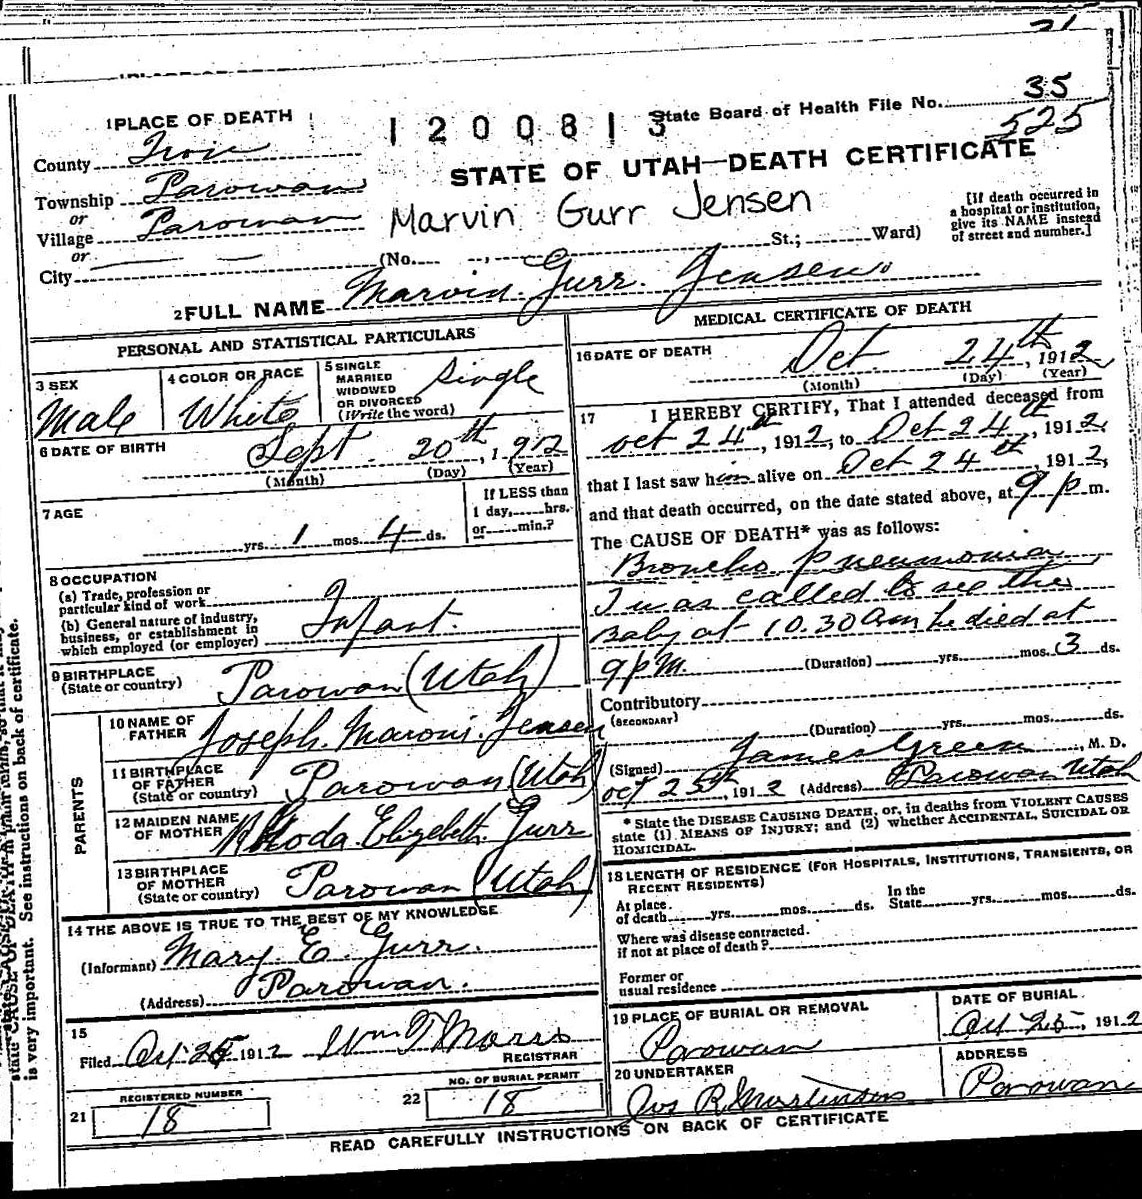 35
State Board of Health File No. 525
1 PLACE OF DEATH
1200813
County Iron
STATE OF UTAH—DEATH CERTIFICATE
Township Parowan
or
Village Parowan
or
City
Marvin Gurr Jensen
(No. St.; Ward)
[If death occurred in
a hospital or institution,
give its NAME instead
of street and number.]
2 FULL NAME Marvin Gurr Jensen
PERSONAL AND STATISTICAL PARTICULARS
3 SEX
Male
4 COLOR OR RACE
White
5 SINGLE
MARRIED
WIDOWED
OR DIVORCED
(Write the word)
Single
6 DATE OF BIRTH
Sept. 20th, 1912
(Month) (Day) (Year)
7 AGE
yrs. 1 mos. 4 ds.
If LESS than
1 day, hrs.
or min.?
8 OCCUPATION
(a) Trade, profession or
particular kind of work
(b) General nature of industry,
business, or establishment in
which employed (or employer)
Infant.
9 BIRTHPLACE
(State or country)
Parowan (Utah)
PARENTS
10 NAME OF
FATHER
Joseph. Maroni. Jensen
11 BIRTHPLACE
OF FATHER
(State or country)
Parowan (Utah)
12 MAIDEN NAME
OF MOTHER
Rhoda Elizebeth Gurr
13 BIRTHPLACE
OF MOTHER
(State or country)
Parowan (Utah)
14 THE ABOVE IS TRUE TO THE BEST OF MY KNOWLEDGE
(Informant) Mary. E. Gurr.
(Address) Parowan.
15
Filed Oct 25 1912 Wm T Morris
REGISTRAR
21
REGISTERED NUMBER
18
22
NO. OF BURIAL PERMIT
18
MEDICAL CERTIFICATE OF DEATH
16 DATE OF DEATH
Oct. 24th, 1912
(Month) (Day) (Year)
17 I HEREBY CERTIFY, That I attended deceased from
Oct 24th, 1912, to Oct 24th, 1912,
that I last saw him alive on Oct 24th, 1912,
and that death occurred, on the date stated above, at 9 p m.
The CAUSE OF DEATH* was as follows:
Broncho pneumonia
I was called to see the
Baby at 10.30 am he died at
9 p M. (Duration) yrs. mos. 3 ds.
Contributory
(SECONDARY)
(Duration) yrs. mos. ds.
(Signed) James Green, M. D.
Oct 25th, 1912 (Address) Parowan Utah
* State the DISEASE CAUSING DEATH, or, in deaths from VIOLENT CAUSES
state (1) MEANS OF INJURY; and (2) whether ACCIDENTAL, SUICIDAL OR
HOMICIDAL.
18 LENGTH OF RESIDENCE (FOR HOSPITALS, INSTITUTIONS, TRANSIENTS, OR
RECENT RESIDENTS)
At place
of death yrs. mos. ds.
In the
State yrs. mos. ds.
Where was disease contracted.
if not at place of death?
Former or
usual residence
19 PLACE OF BURIAL OR REMOVAL
Parowan
DATE OF BURIAL
Oct 25, 1912
20 UNDERTAKER
ADDRESS
Parowan
READ CAREFULLY INSTRUCTIONS ON BACK OF CERTIFICATE
is very important. See instructions on back of certificate.